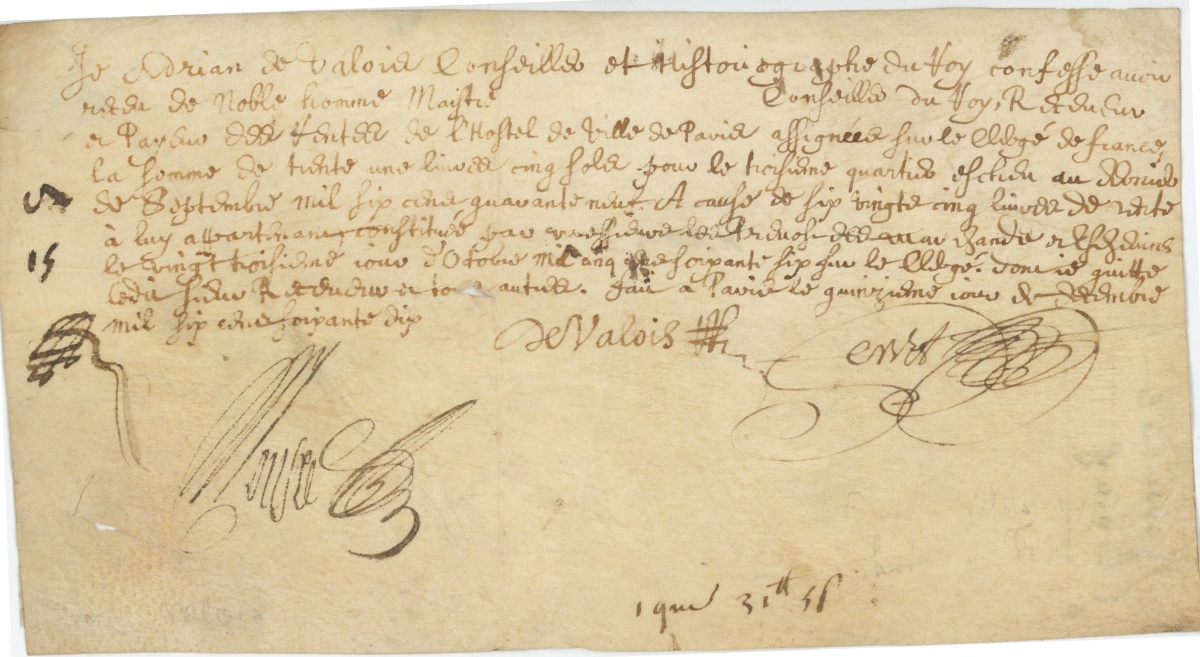 Je Adrian de Valois Conseiller et Historiographe du Roy confesse avoir
receu de Noble homme Maistre Conseiller du Roy, Receveur
et Payeur des Rentes de l'Hostel de Ville de Paris assignées sur le Clergé de france,
la somme de trente une livres cinq sols pour le troisieme quartier escheu au dernier
de Septembre mil six cens quarante neuf, A cause de six vingts cinq livres de rente
à luy appartenant constitué par messieurs les Prevost des marchands et Eschevins
le vingt troisieme jour d'Octobre mil cinq cens soixante six sur le Clergé. dont je quitte
ledit sieur Receveur et tous autres. fait à Paris le quinzieme jour de decembre
mil six cens soixante dix
15
DeValois
1 quar 31tt 5s